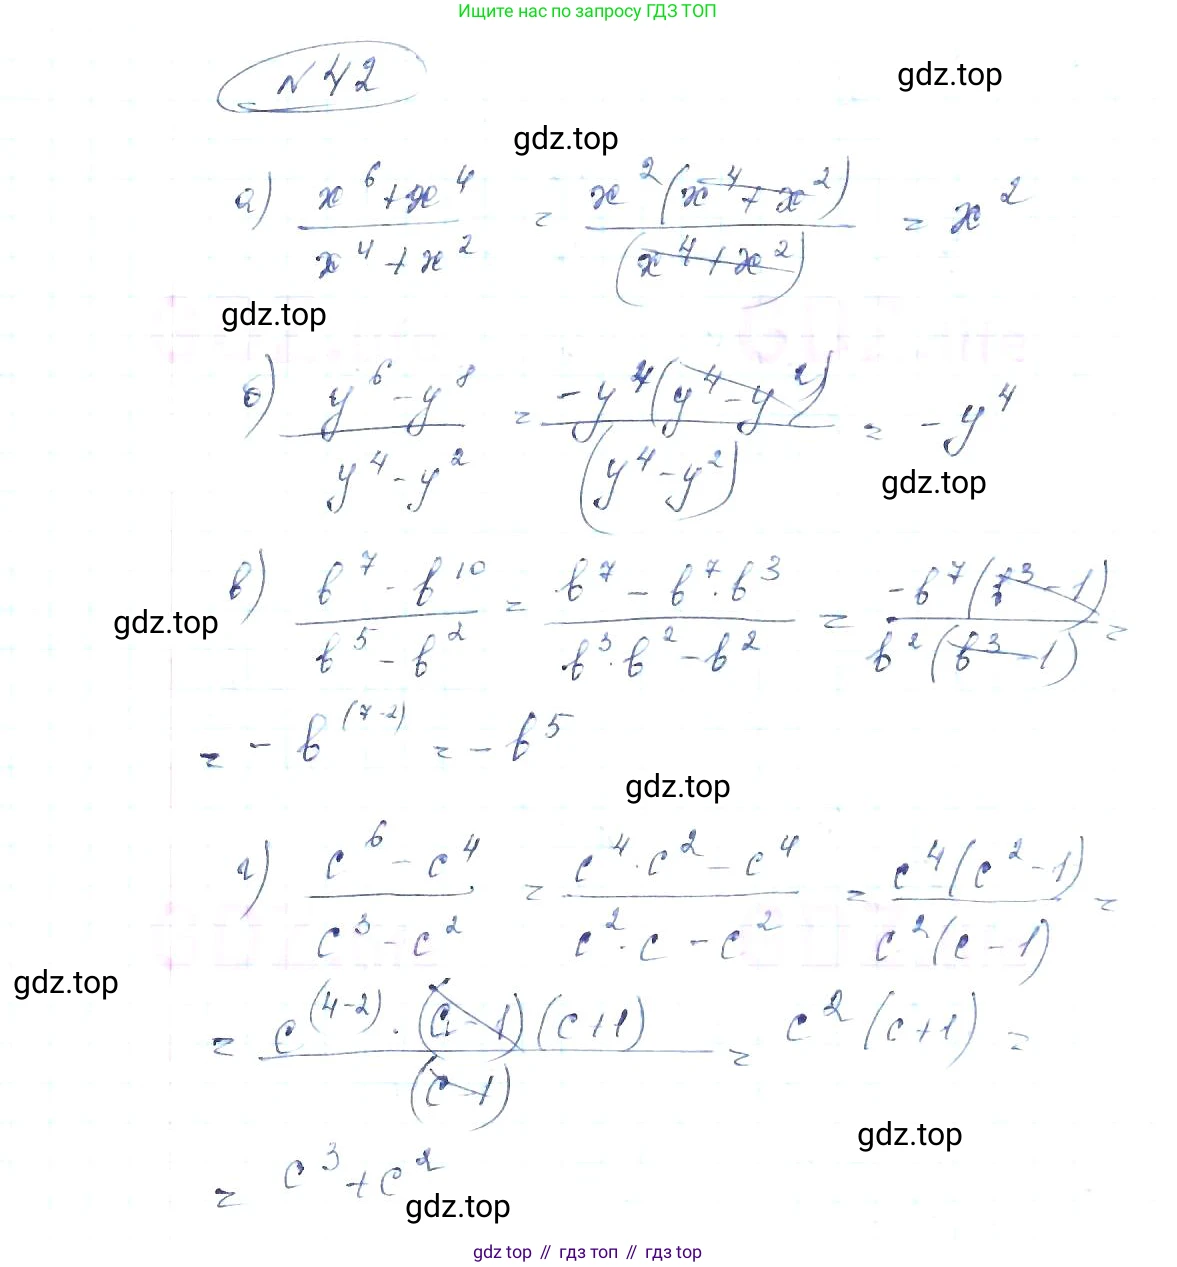 Ищите нас по запросу ГДЗ ТОП
N 42
gdz.top
gdz.top
а) (x^6 + x^4)/(x^4 + x^2) = x^2(x^4 + x^2)/(x^4 + x^2) = x^2
gdz.top
б) (y^6 - y^8)/(y^4 - y^2) = -y^4(y^4 - y^2)/(y^4 - y^2) = -y^4
gdz.top
в) (b^7 - b^10)/(b^5 - b^2) = (b^7 - b^7·b^3)/(b^3·b^2 - b^2) = -b^7(b^3 - 1)/b^2(b^3 - 1) =
gdz.top
= -b^(7-2) = -b^5
gdz.top
г) (c^6 - c^4)/(c^3 - c^2) = (c^4·c^2 - c^4)/(c^2·c - c^2) = c^4(c^2 - 1)/c^2(c - 1) =
gdz.top
= c^(4-2)·(c - 1)(c + 1)/(c - 1) = c^2(c + 1) =
gdz.top
= c^3 + c^2
gdz.top
gdz top // гдз топ // гдз top